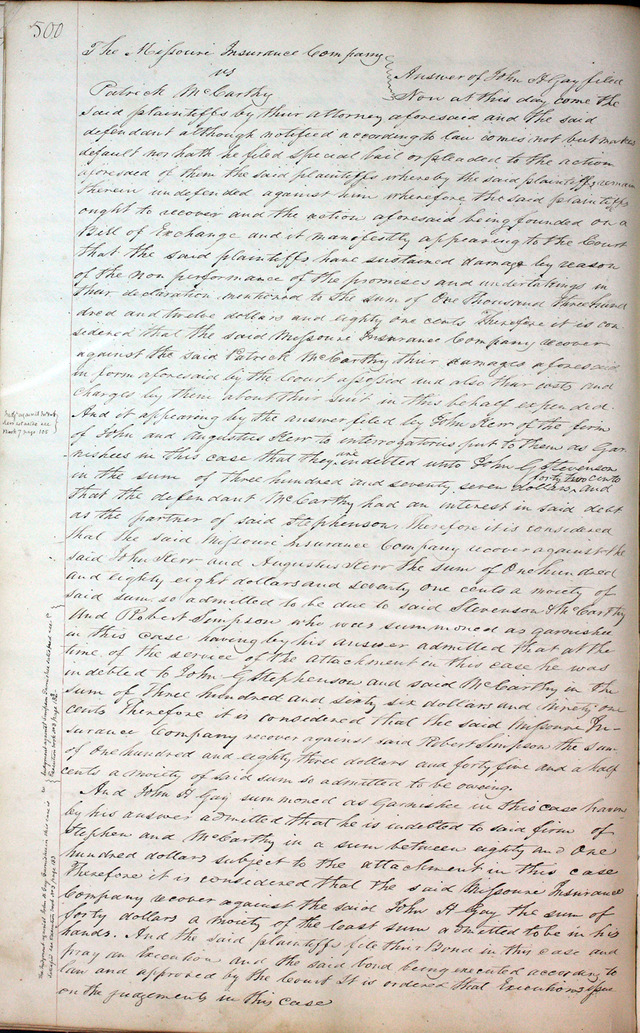 500
The Missouri Insurance Company
vs
Answer of John H Gay filed
Patrick McCarthy
Now at this day come the
said plaintiffs by their attorney aforesaid and the said
defendant although notified according to law comes not but makes
default nor hath he filed special bail or pleaded to the action
aforesaid of them the said plaintiffs whereby the said plaintiffs remain
therein undefended against him wherefore the said plaintiffs
ought to recover and the action aforesaid being founded on a
Bill of Exchange and it manifestly appearing to the Court
that the said plaintiffs have sustained damage by reason
of the non performance of the promises and undertakings in
their declaration mentioned to the sum of One thousand three hun
dred and twelve dollars and eighty one cents Therefore it is con
sidered that the said Missouri Insurance Company recover
against the said Patrick McCarthy their damages aforesaid
in form aforesaid by the Court assessed and also their costs and
charges by them about their suit in this behalf expended.
And it appearing by the answer filed by John Kerr of the firm
of John and Augustus Kerr to interogatories put to them as Gar
nishees in this case that they are indebted unto John G Stevenson
in the sum of three hundred and seventy seven dollars forty two cents and
that the defendant McCarthy had an interest in said debt
as the partner of said Stephenson, Therefore it is considered
that the said Missouri Insurance Company recover against the
said John Kerr and Augustus Kerr the sum of One hundred
and eighty eight dollars and seventy one cents a moiety of
said sum so admitted to be due to said Stevenson & McCarthy
And Robert Simpson who was summoned as garnishee
in this case having by his answer admitted that at the
time of the service of the attachment in this case he was
indebted to John G Stephenson and said McCarthy in the
sum of Three hundred and sixty six dollars and ninety one
cents Therefore it is considered that the said Missouri In-
surance Company recover against said Robert Simpson the sum
of One hundred and eighty three dollars and forty five and a half
cents a moiety of said sum so admitted to be owing.
And John H Gay summoned as Garnishee in this case having
by his answer admitted that he is indebted to said firm of
Stephen and McCarthy in a sum between eighty and One
hundred dollars subject to the attachment in this case
Therefore it is considered that the said Missouri Insurance
Company recover against the said John H Gay the sum of
forty dollars a moiety of the least sum admitted to be in his
hands. And the said plaintiffs file their Bond in this case and
pray an Execution and the said bond being executed according to
law and approved by the Court It is ordered that Executions issue
on the judgements in this case
Book 7 page 105